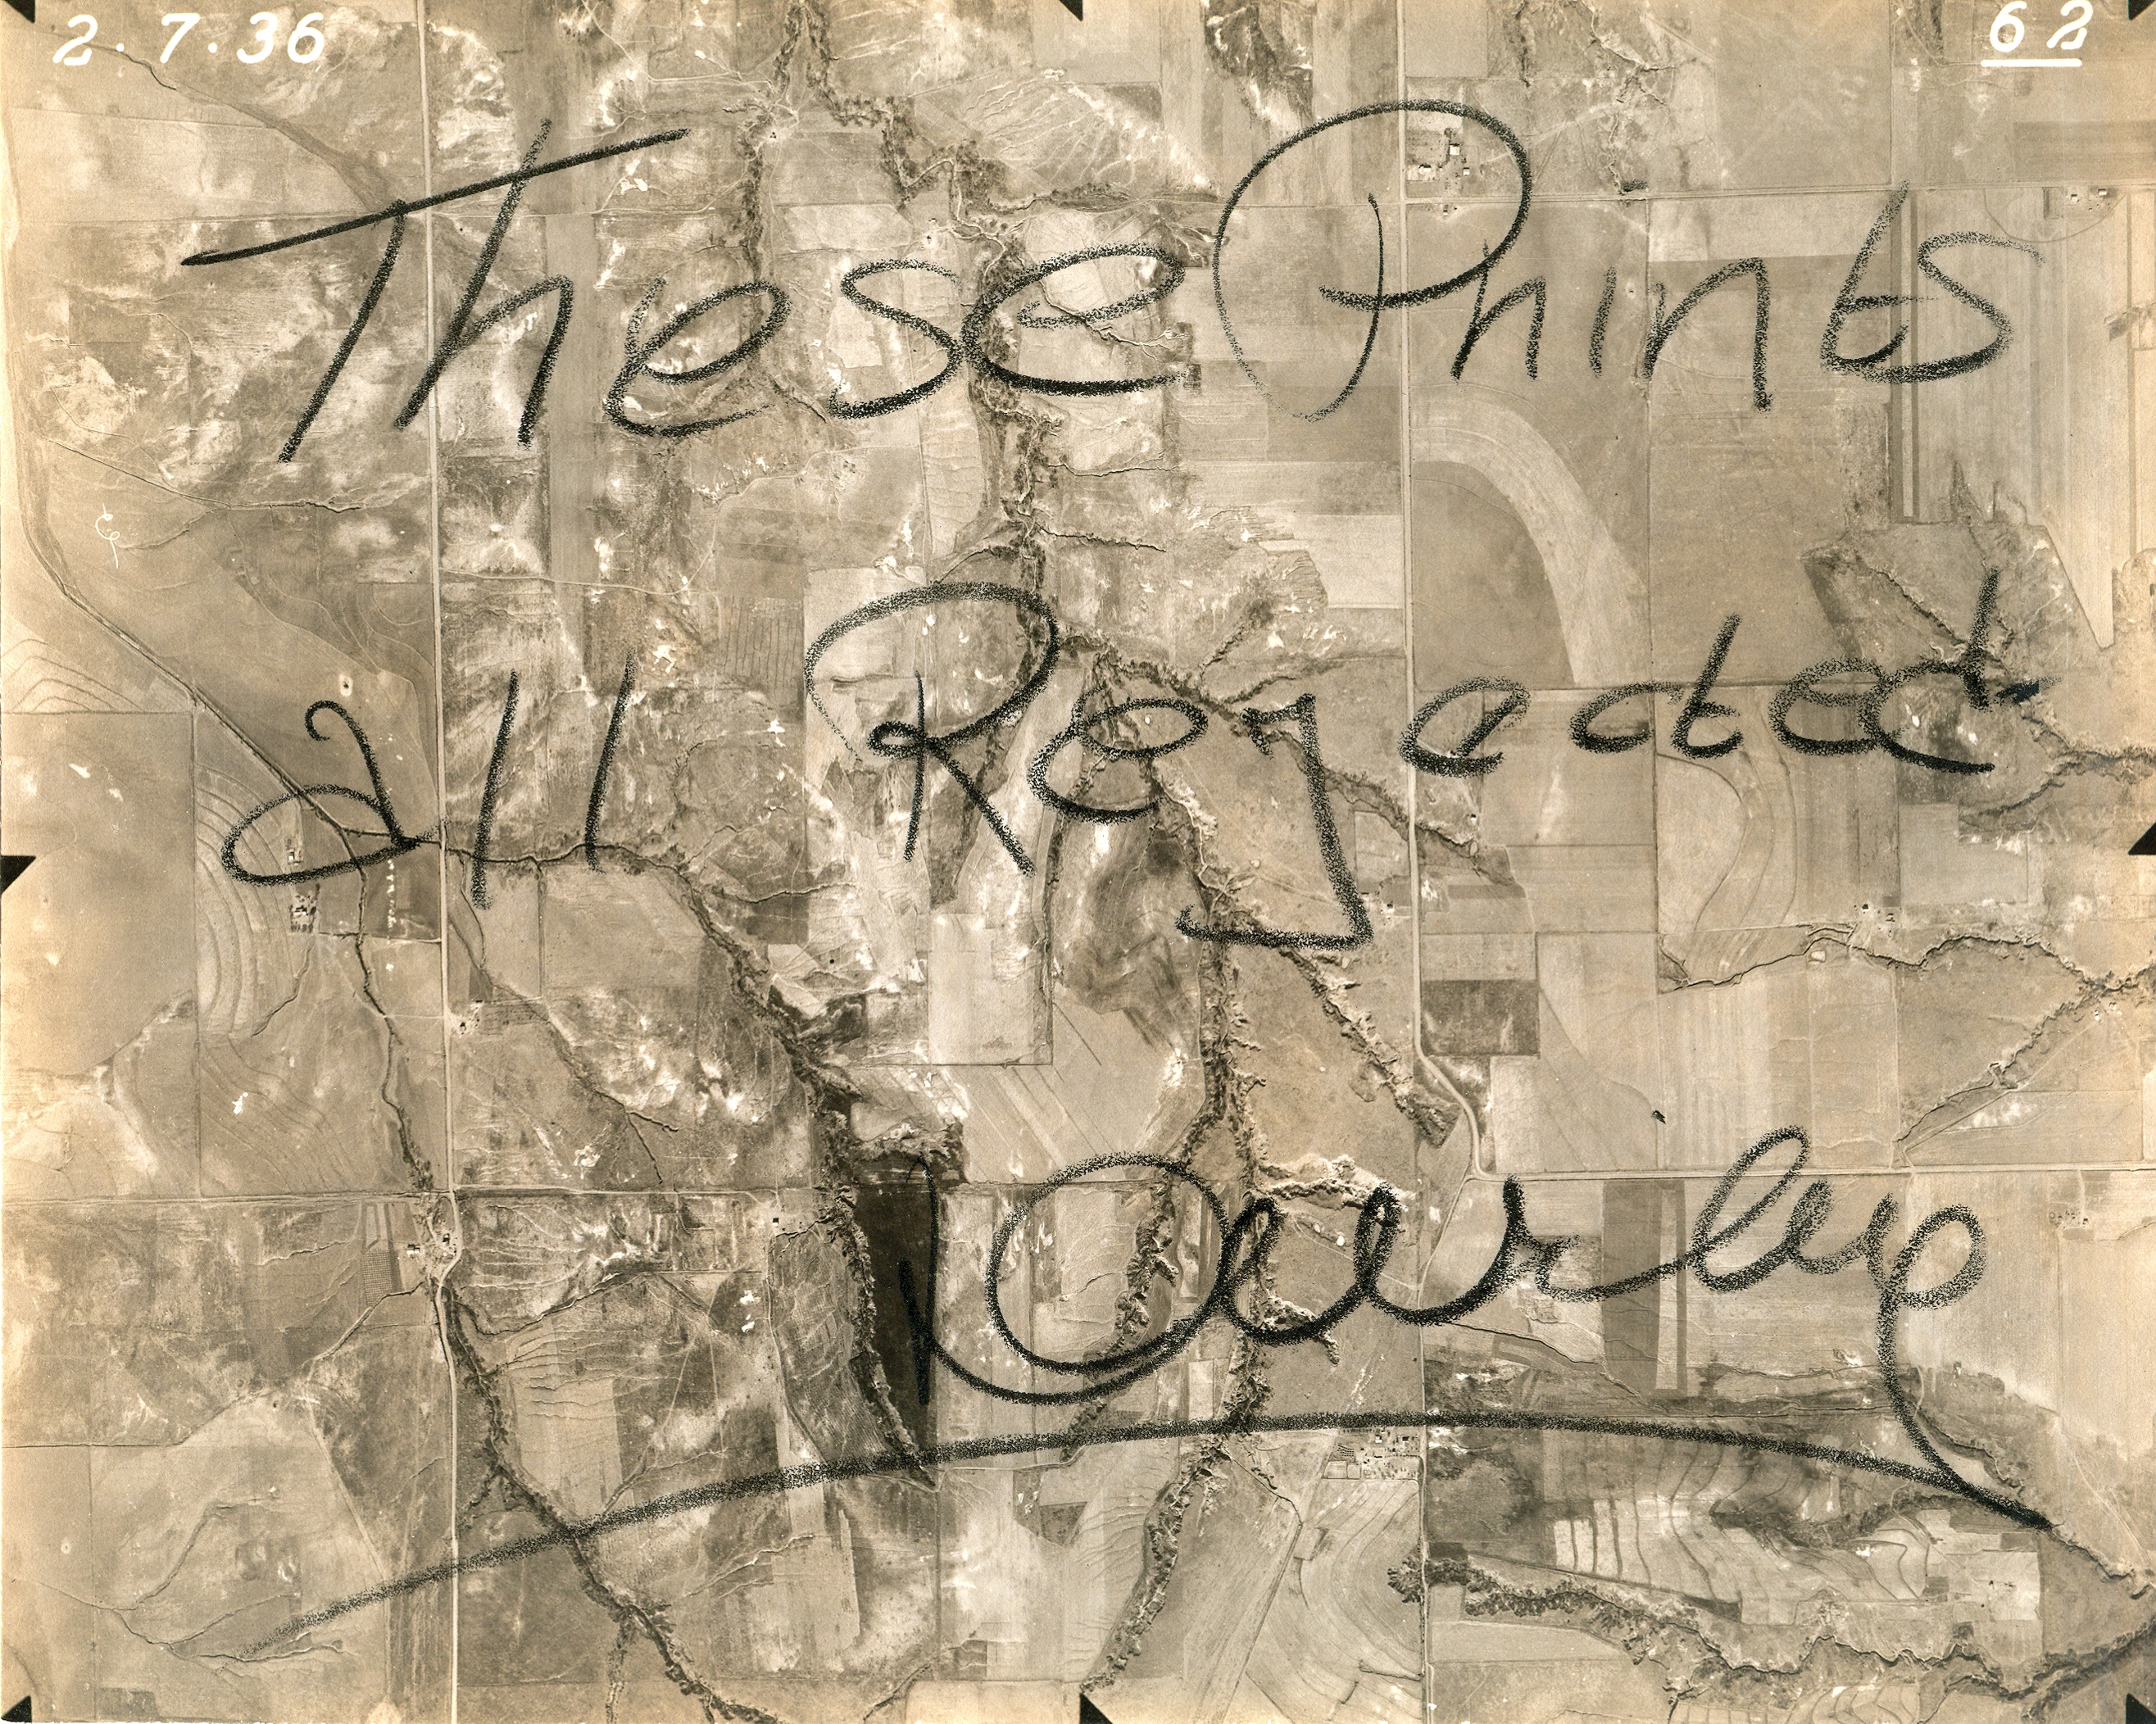 2·7·36 62
These Prints
all Rejected